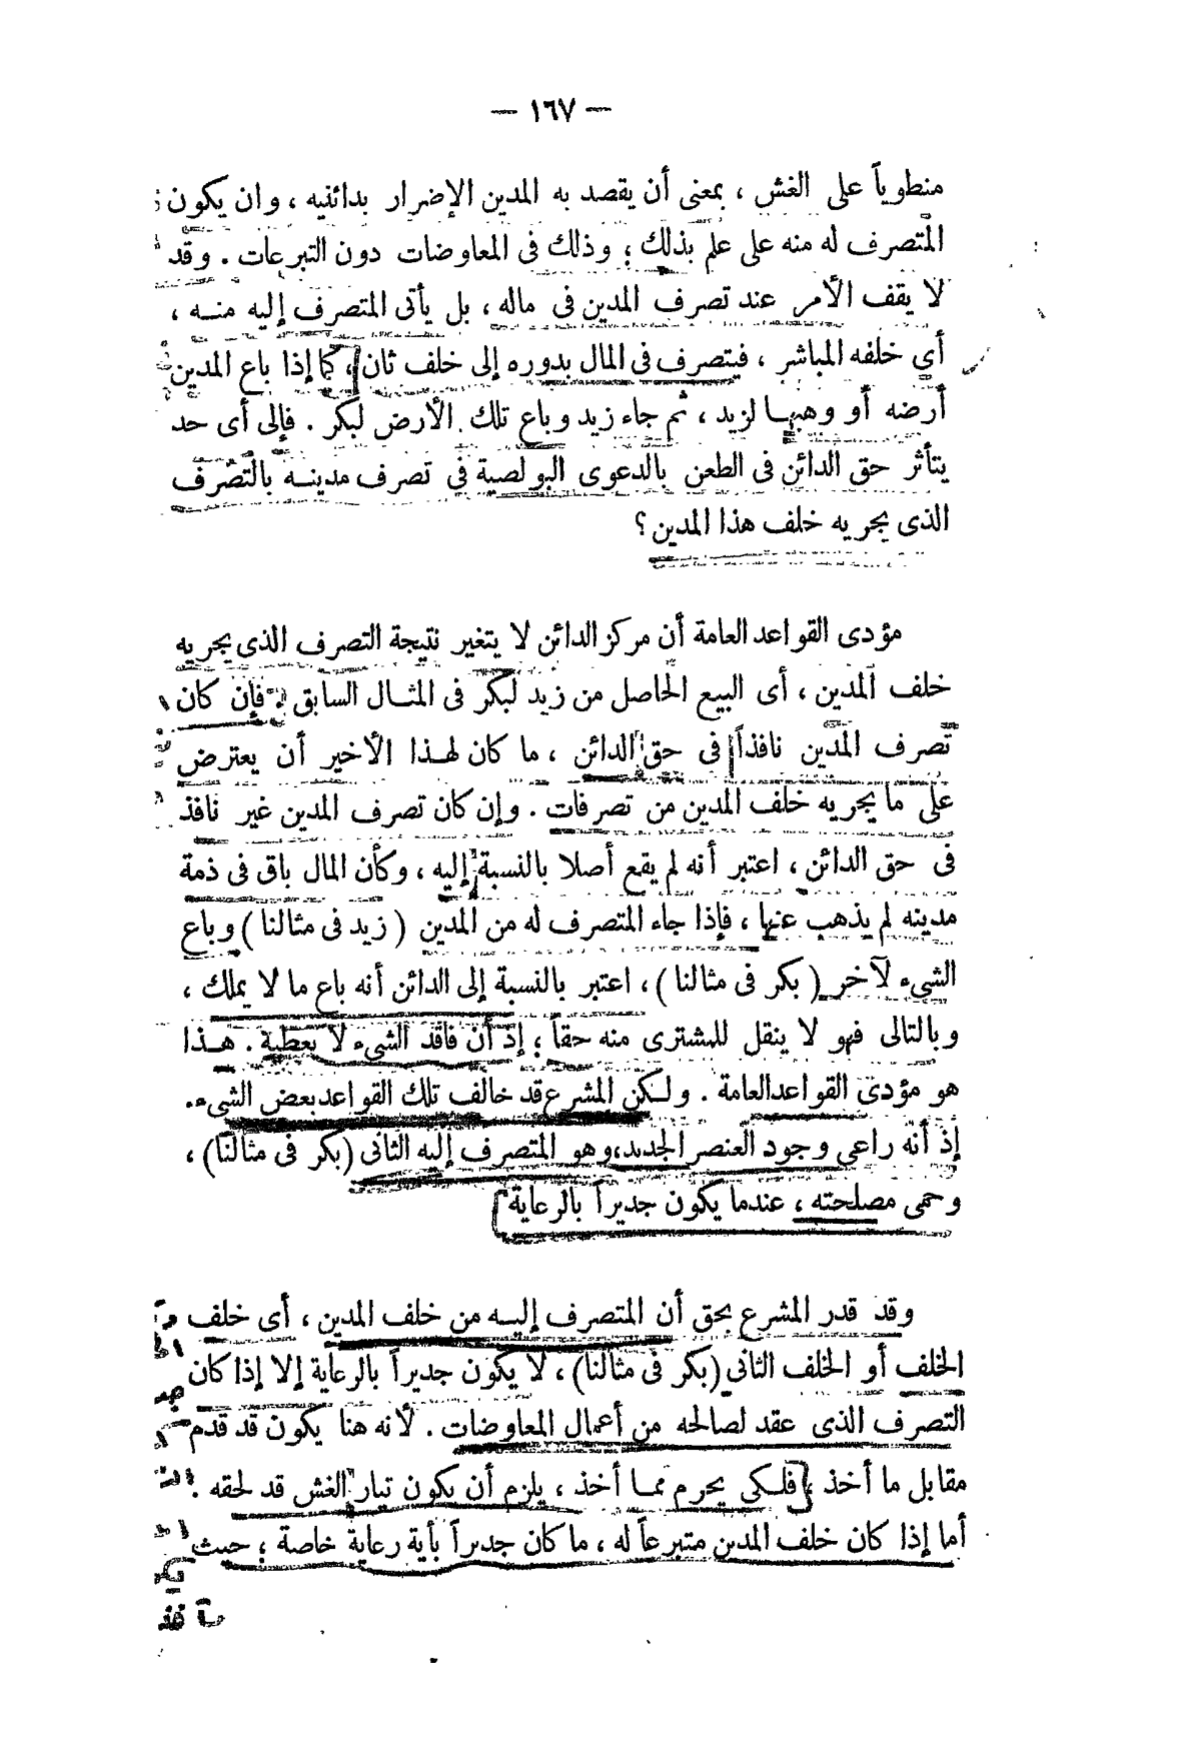 — ١٦٧ —
منطوياً على الغش ، بمعنى أن يقصد به المدين الإضرار بدائنيه ، وان يكون
المتصرف له منه على علم بذلك ؛ وذلك فى المعاوضات دون التبرعات . وقد
لا يقف الأمر عند تصرف المدين فى ماله ، بل يأتى المتصرف إليه منـه ،
أي خلفه المباشر ، فيتصرف فى المال بدوره إلى خلف ثان ، كما إذا باع المدين
أرضه أو وهبهـا لزيد ، ثم جاء زيد وباع تلك الأرض لبكر . فإلى أى حد
يتأثر حق الدائن فى الطعن بالدعوى البولصية فى تصرف مدينـه بالتصرف
الذى يجريه خلف هذا المدين ؟
مؤدى القواعد العامة أن مركز الدائن لا يتغير نتيجة التصرف الذى يجريه
خلف المدين ، أى البيع الحاصل من زيد لبكر فى المثـال السابق . فإن كان
تصرف المدين نافذاً فى حق الدائن ، ما كان لهـذا الأخير أن يعترض
على ما يجريه خلف المدين من تصرفات . وإن كان تصرف المدين غير نافذ
فى حق الدائن ، اعتبر أنه لم يقع أصلا بالنسبة إليه ، وكأن المال باق فى ذمة
مدينه لم يذهب عنها ، فإذا جاء المتصرف له من المدين ( زيد فى مثالنا ) وباع
الشىء لآخر ( بكر فى مثالنا ) ، اعتبر بالنسبة إلى الدائن أنه باع ما لا يملك ،
وبالتالى فهو لا ينقل للمشترى منه حقاً ؛ إذ أن فاقد الشىء لا يعطيه . هـذا
هو مؤدى القواعد العامة . ولـكن المشرع قد خالف تلك القواعد بعض الشىء .
إذ أنه راعى وجود العنصر الجديد ، وهو المتصرف إليه الثانى (بكر فى مثالنا) ،
وحمى مصلحته ، عندما يكون جديراً بالرعاية
وقد قدر المشرع بحق أن المتصرف إليـه من خلف المدين ، أى خلف
الخلف أو الخلف الثانى (بكر فى مثالنا) ، لا يكون جديراً بالرعاية إلا إذا كان
التصرف الذى عقد لصالحه من أعمال المعاوضات . لأنه هنا يكون قد قدم
مقابل ما أخذ ، فلـكى يحرم ممـا أخذ ، يلزم أن يكون تيار الغش قد لحقه .
أما إذا كان خلف المدين متبرعاً له ، ما كان جديراً بأية رعاية خاصة ؛ حيث